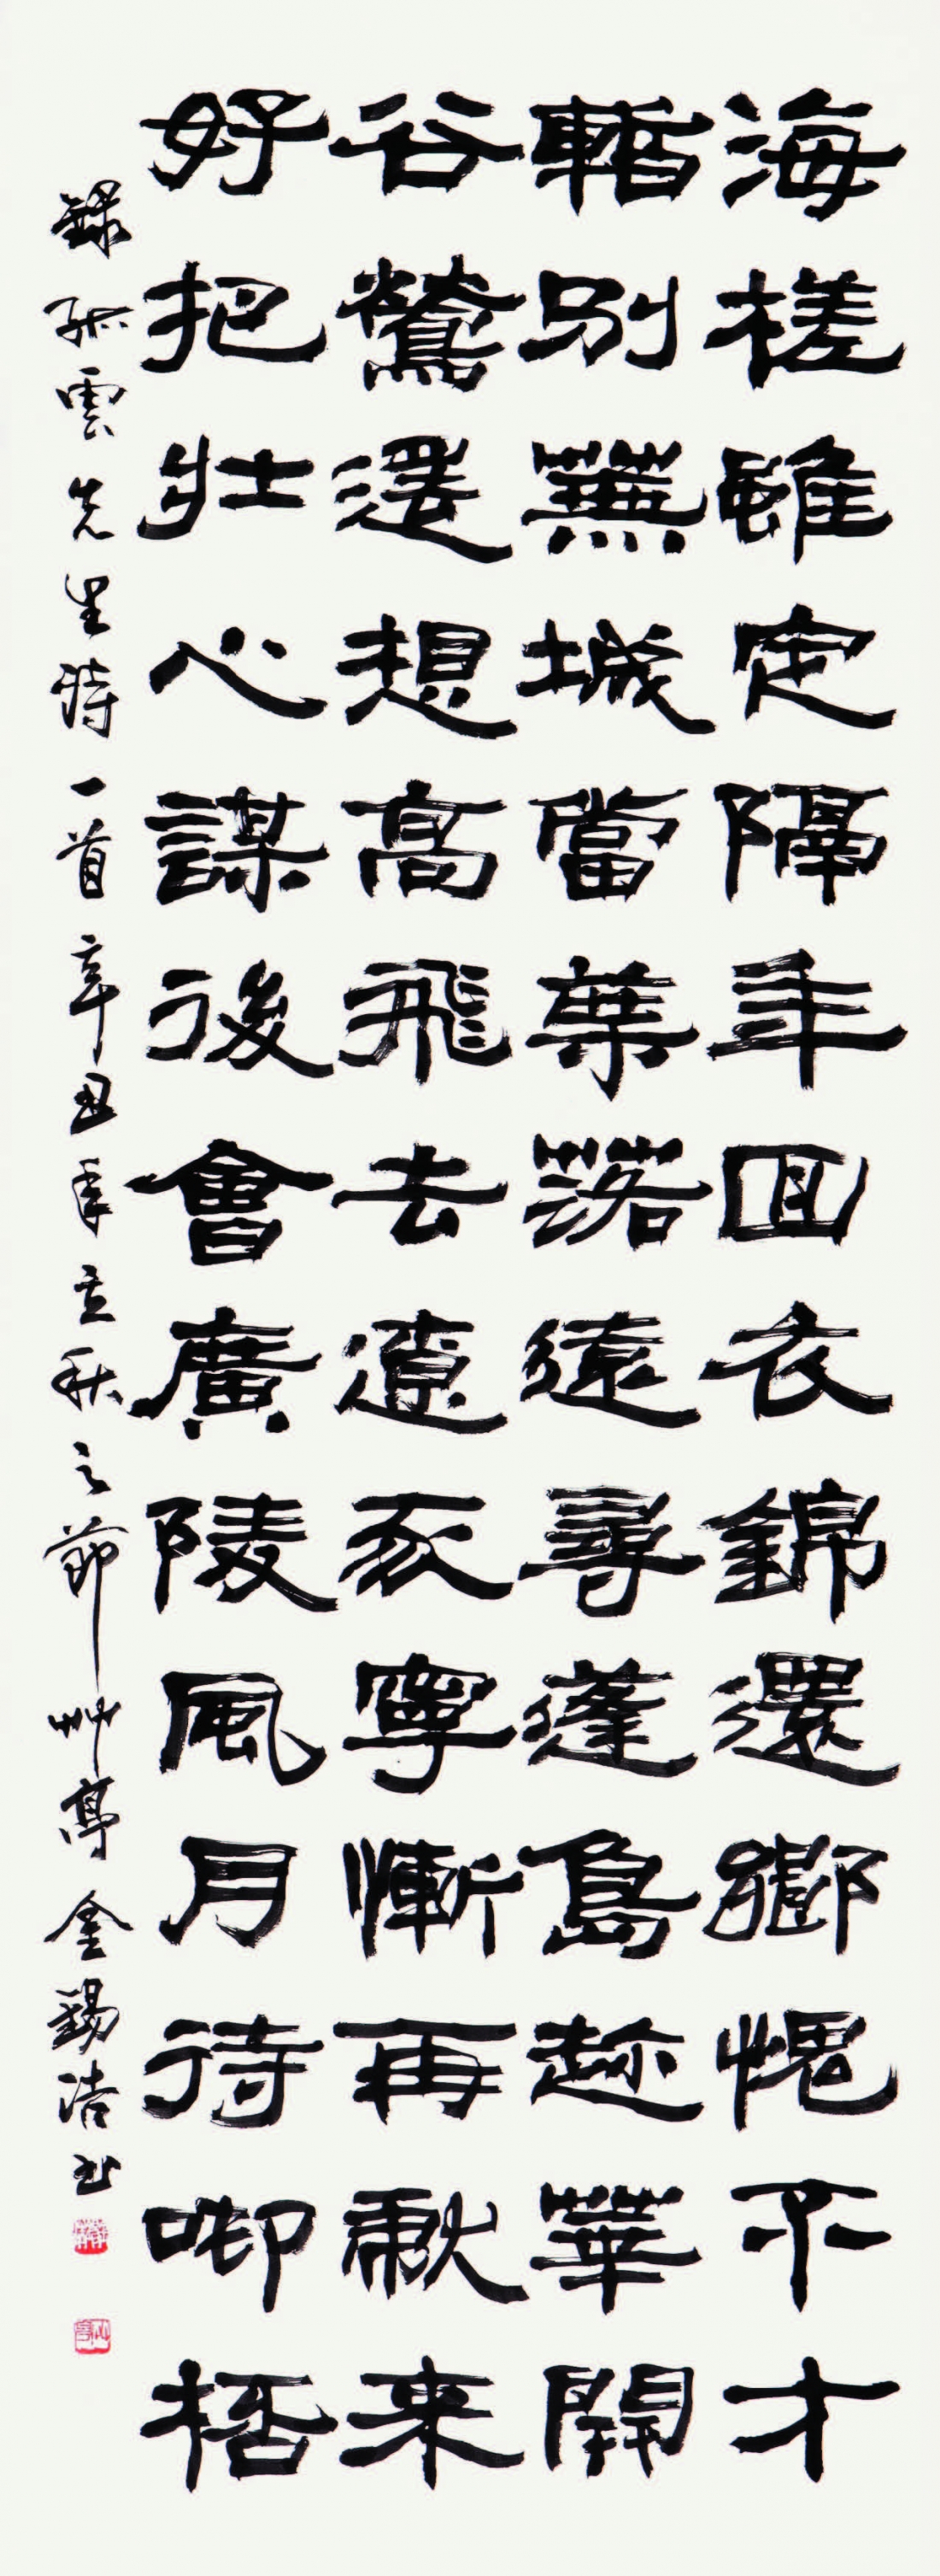 海槎雖定隔年回衣錦還鄉愧不才
暫別蕪城當葉落遠尋蓬島趂華開
谷鶯遙想高飛去遼豕寧慚再献来
好把壯心謀後會廣陵風月待啣桮
錄孤雲先生詩一首 辛丑年立秋之節 艸亭 金錫浩书